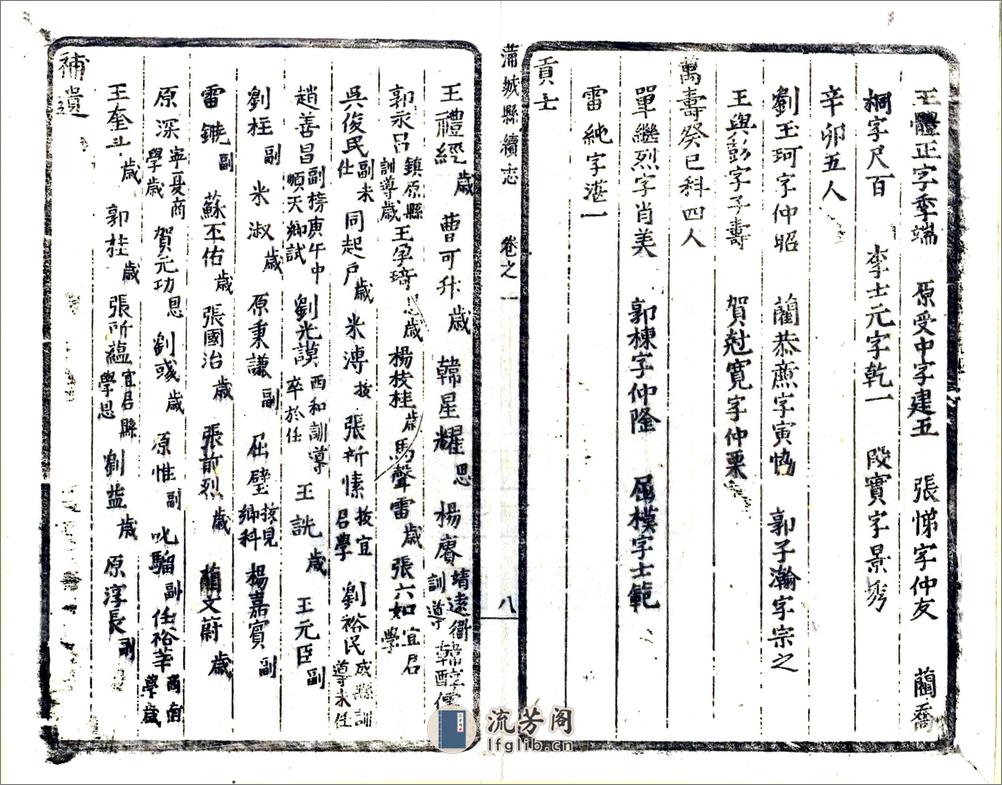 王體正字季端 原受中字建五 張悌字仲友 藺喬
桐字尺百 李士元字乾一 段實字景秀
辛卯五人
劉玉珂字仲昭 藺恭燾字寅恊 郭子瀚字宗之
王與彭字子壽 賀尅寬字仲栗
萬壽癸巳科四人
單繼烈字肖美 郭棟字仲隆 屈模字士範
雷純字湛一
貢士
蒲城縣續志 卷之一 八
王禮經歲 曹可升歲 韓星耀恩 楊賡靖遠衛訓導 韓
郭永呂鎮原縣訓導歲 王孕琦歲 楊枝桂歲 馬聲雷歲 張六如宜君學
吳俊民副未仕 同起戶歲 米溥拔 張所愫拔宜君學 劉裕民成縣訓導未任
趙善昌副榜庚午中順天鄉試 劉光謨西和訓導卒於任 王詵歲 王元臣副
劉柱副 米淑歲 原秉謙副 屈壁拔見鄉科 楊嘉賓副
雷鏃副 蘇丕佑歲 張國治歲 張前烈歲 藺文蔚歲
原深寧夏商學歲 賀元功恩 劉彧歲 原惟副 叱騮副 任裕莘商南學歲
王奎斗歲 郭桂歲 張所蘊宜君縣學恩 劉益歲 原淳長副
補遺
流芳阁
lfglib.cn